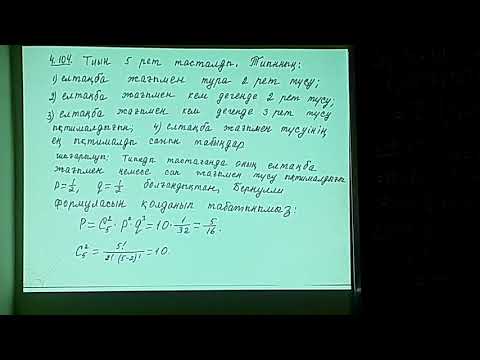 4.104. Тиын 5 рет тасталды. Тиынның:
1) елтаңба жағымен тура 2 рет түсу;
2) елтаңба жағымен кем дегенде 2 рет түсу;
3) елтаңба жағымен кем дегенде 3 рет түсу
ықтималдығын; 4) елтаңба жағымен түсуінің
ең ықтималды санын табыңдар
Шығарылуы: Тиынды тастағанда оның елтаңба
жағымен немесе сан жағымен түсу ықтималдығы
P=1/2, q=1/2 болғандықтан, Бернулли
формуласын қолданып табатынымыз:
P = C₅² · P² q³ = 10 · 1/32 = 5/16.
C₅² = 5!/(2! (5-2)!) = 10.